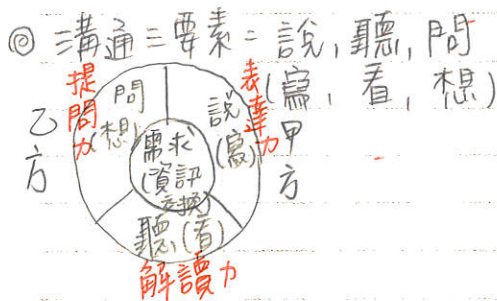 ◎ 溝通三要素=說,聽,問
(寫,看,想)
提問力
問
(想)
乙方
說
(寫)
表達力
甲方
需求
(資訊
交換)
聽(看)
解讀力